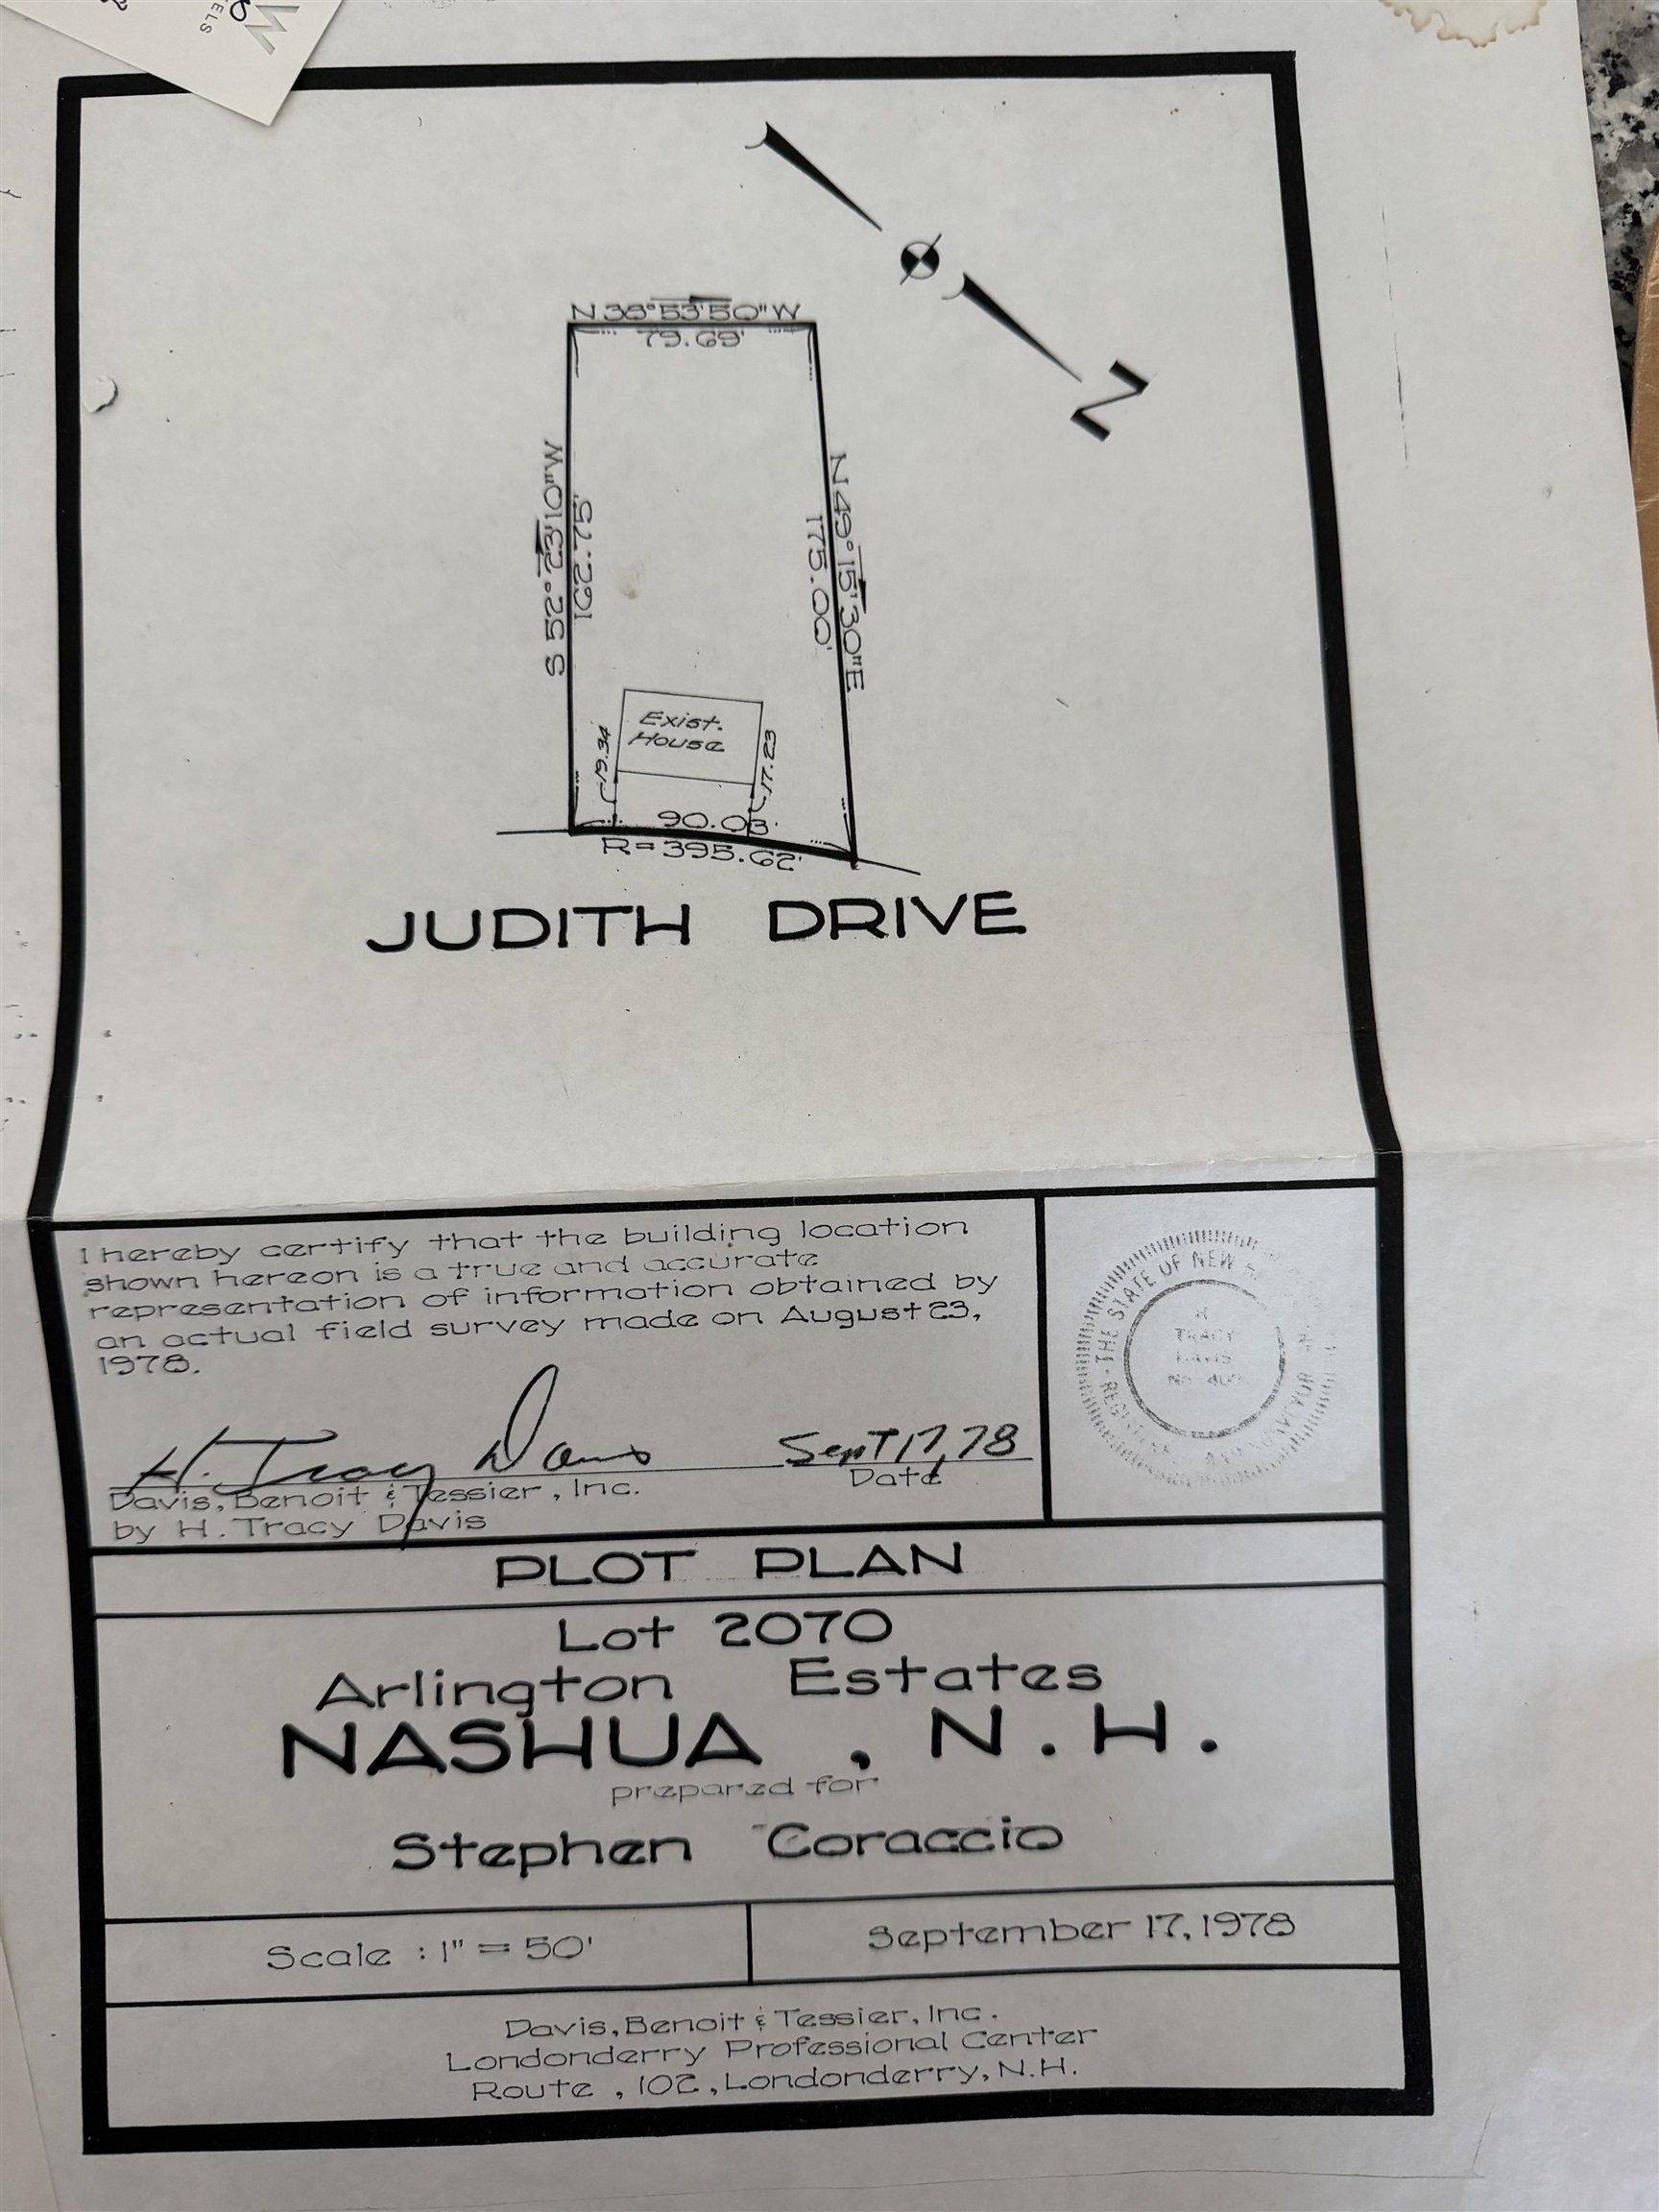 W
ELS
N
N 38°53'50" W
79.69'
S 52° 23'10" W
162.75'
N 49° 15' 30" E
175.00'
Exist.
House
19.34
17.23
90.03'
R=395.62'
JUDITH DRIVE
I hereby certify that the building location
shown hereon is a true and accurate
representation of information obtained by
an actual field survey made on August 23,
1978.
H. Tracy Davis Sept 17, 78
Date
Davis, Benoit & Tessier, Inc.
by H. Tracy Davis
THE STATE OF NEW
TRACY
DAVIS
PLOT PLAN
Lot 2070
Arlington Estates
NASHUA, N.H.
prepared for
Stephen Coraccio
Scale : 1" = 50'
September 17, 1978
Davis, Benoit & Tessier, Inc.
Londonderry Professional Center
Route , 102, Londonderry, N.H.